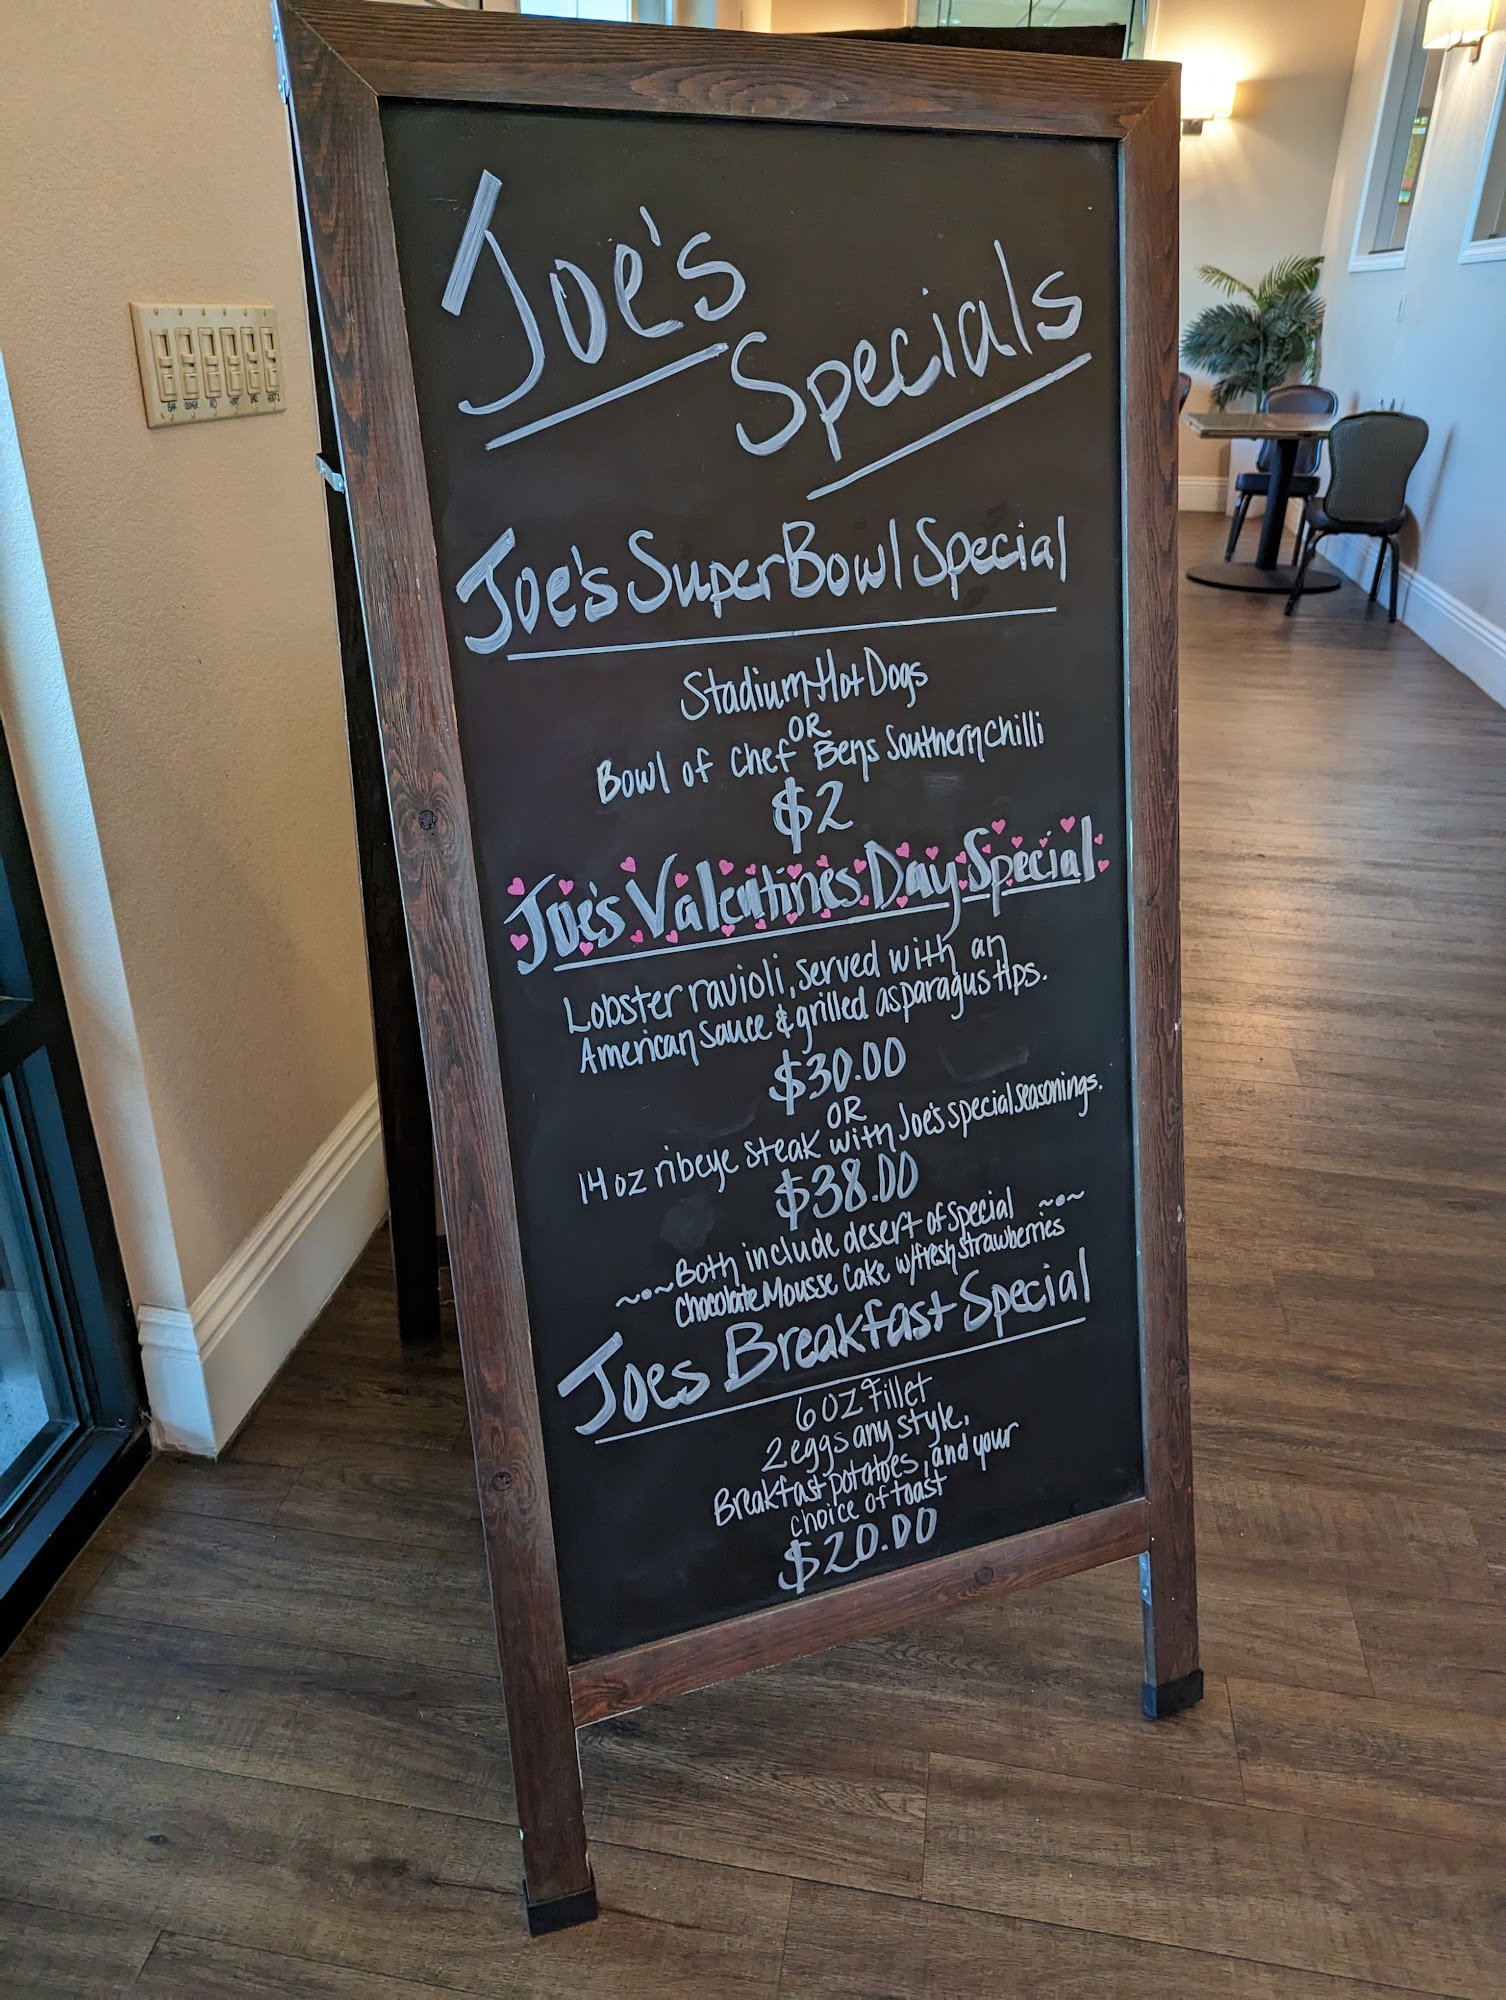 Joe's
Specials
Joe's Super Bowl Special
Stadium Hot Dogs
OR
Bowl of Chef Bens Southern Chilli
$2
Joe's Valentines Day Special
Lobster ravioli, served with an
American Sauce & grilled asparagus tips.
$30.00
OR
14oz ribeye steak with Joe's special seasonings.
$38.00
Both include desert of special
Chocolate Mousse Cake w/fresh strawberries
Joes Breakfast Special
6oz Fillet
2 eggs any style,
Breakfast potatoes, and your
choice of toast
$20.00